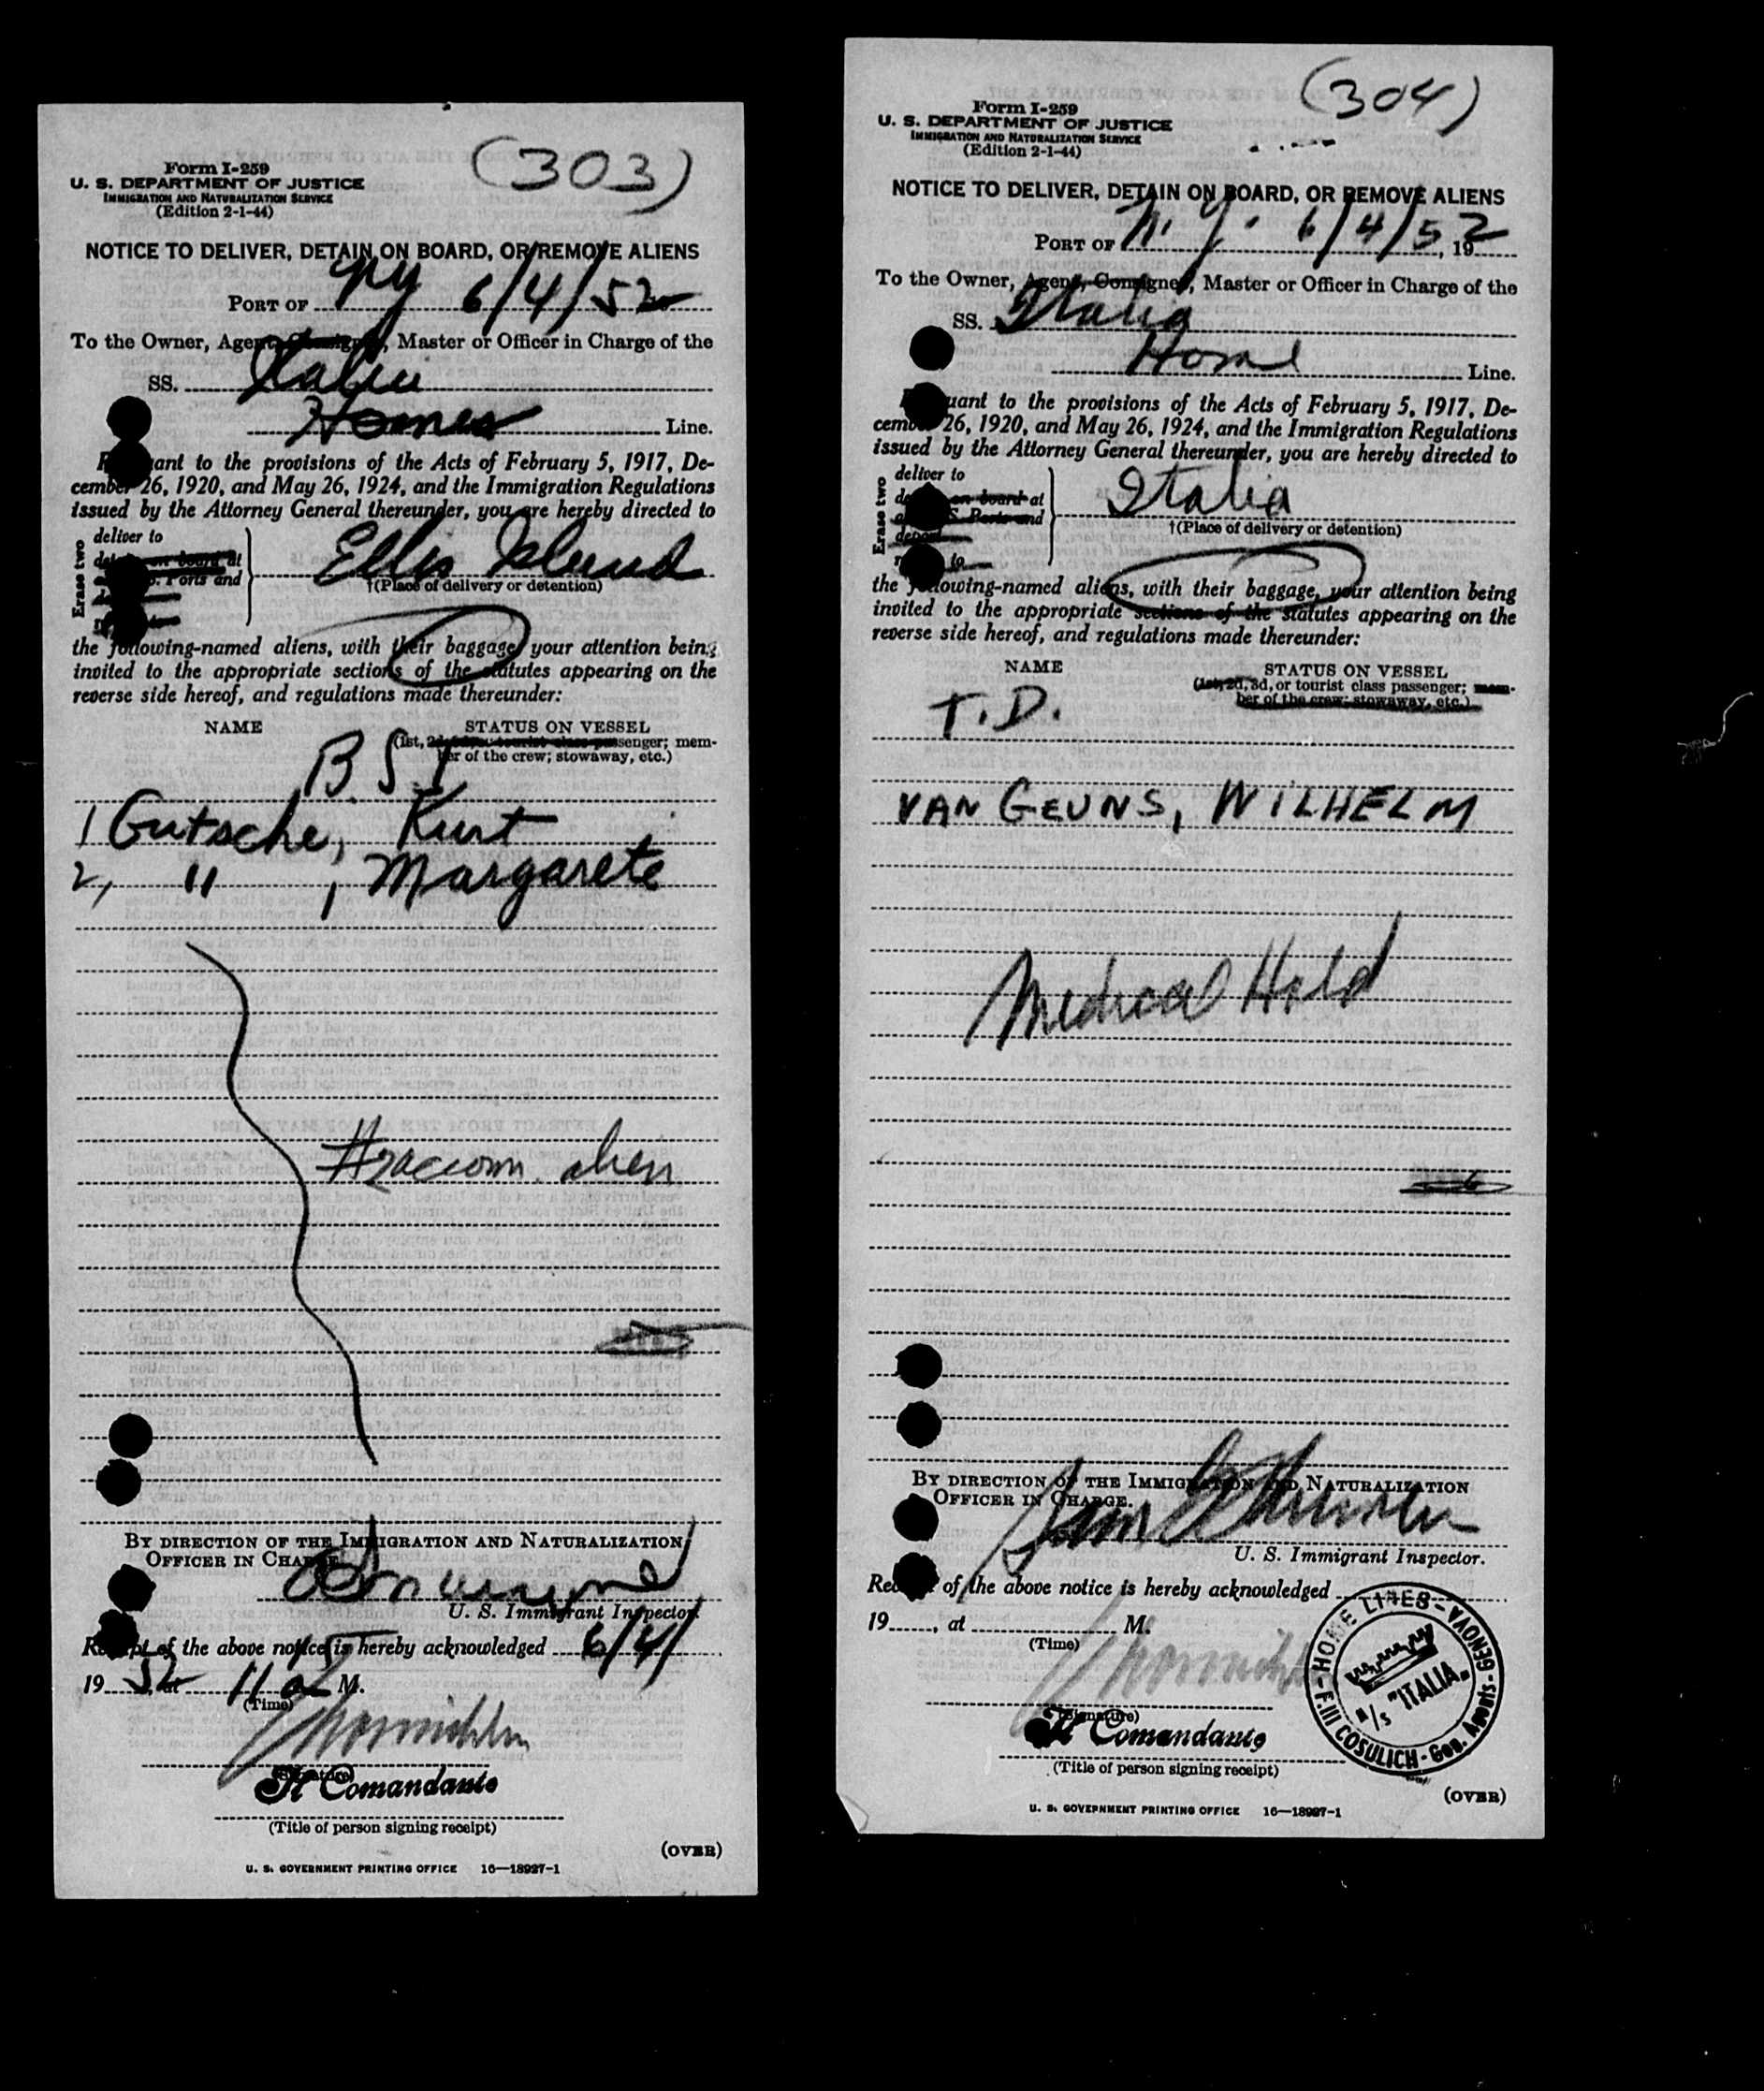 (303)
Form I-259
U. S. DEPARTMENT OF JUSTICE
IMMIGRATION AND NATURALIZATION SERVICE
(Edition 2-1-44)
NOTICE TO DELIVER, DETAIN ON BOARD, OR REMOVE ALIENS
PORT OF NY 6/4/52
To the Owner, Agent, Consignee, Master or Officer in Charge of the
SS. Italia
Homes Line.
ant to the provisions of the Acts of February 5, 1917, De-
cember 26, 1920, and May 26, 1924, and the Immigration Regulations
issued by the Attorney General thereunder, you are hereby directed to
Erase two
deliver to
on board at
Ports and
Ellis Island
†(Place of delivery or detention)
the following-named aliens, with their baggage, your attention being
invited to the appropriate sections of the statutes appearing on the
reverse side hereof, and regulations made thereunder:
NAME STATUS ON VESSEL
(1st, 2d, or tourist class passenger; mem-
ber of the crew; stowaway, etc.)
B.S.I
1 Gutsche, Kurt
2, " , Margarete
alien
BY DIRECTION OF THE IMMIGRATION AND NATURALIZATION
OFFICER IN CHARGE
U. S. Immigrant Inspector.
Receipt of the above notice is hereby acknowledged 6/4/
1952, at 11 a M.
(Time)
(Signature)
Il Comandante
(Title of person signing receipt)
(OVER)
U. S. GOVERNMENT PRINTING OFFICE 16—18987-1
(304)
Form I-259
U. S. DEPARTMENT OF JUSTICE
IMMIGRATION AND NATURALIZATION SERVICE
(Edition 2-1-44)
NOTICE TO DELIVER, DETAIN ON BOARD, OR REMOVE ALIENS
PORT OF N.Y. 6/4/52, 19
To the Owner, Agent, Consignee, Master or Officer in Charge of the
SS. Italia
Home Line.
uant to the provisions of the Acts of February 5, 1917, De-
cember 26, 1920, and May 26, 1924, and the Immigration Regulations
issued by the Attorney General thereunder, you are hereby directed to
Erase two
deliver to
on board at
S. Ports and
deport
to
Italia
†(Place of delivery or detention)
the following-named aliens, with their baggage, your attention being
invited to the appropriate sections of the statutes appearing on the
reverse side hereof, and regulations made thereunder:
NAME STATUS ON VESSEL
(1st, 2d, 3d, or tourist class passenger; mem-
ber of the crew; stowaway, etc.)
T.D.
VAN GEUNS, WILHELM
Medical Hold
BY DIRECTION OF THE IMMIGRATION AND NATURALIZATION
OFFICER IN CHARGE.
U. S. Immigrant Inspector.
Receipt of the above notice is hereby acknowledged
19, at M.
(Time)
(Signature)
Il Comandante
(Title of person signing receipt)
HOME LINES - GENOVA
n/s "ITALIA"
F.lli COSULICH - Gen. Agents
(OVER)
U. S. GOVERNMENT PRINTING OFFICE 16—18987-1